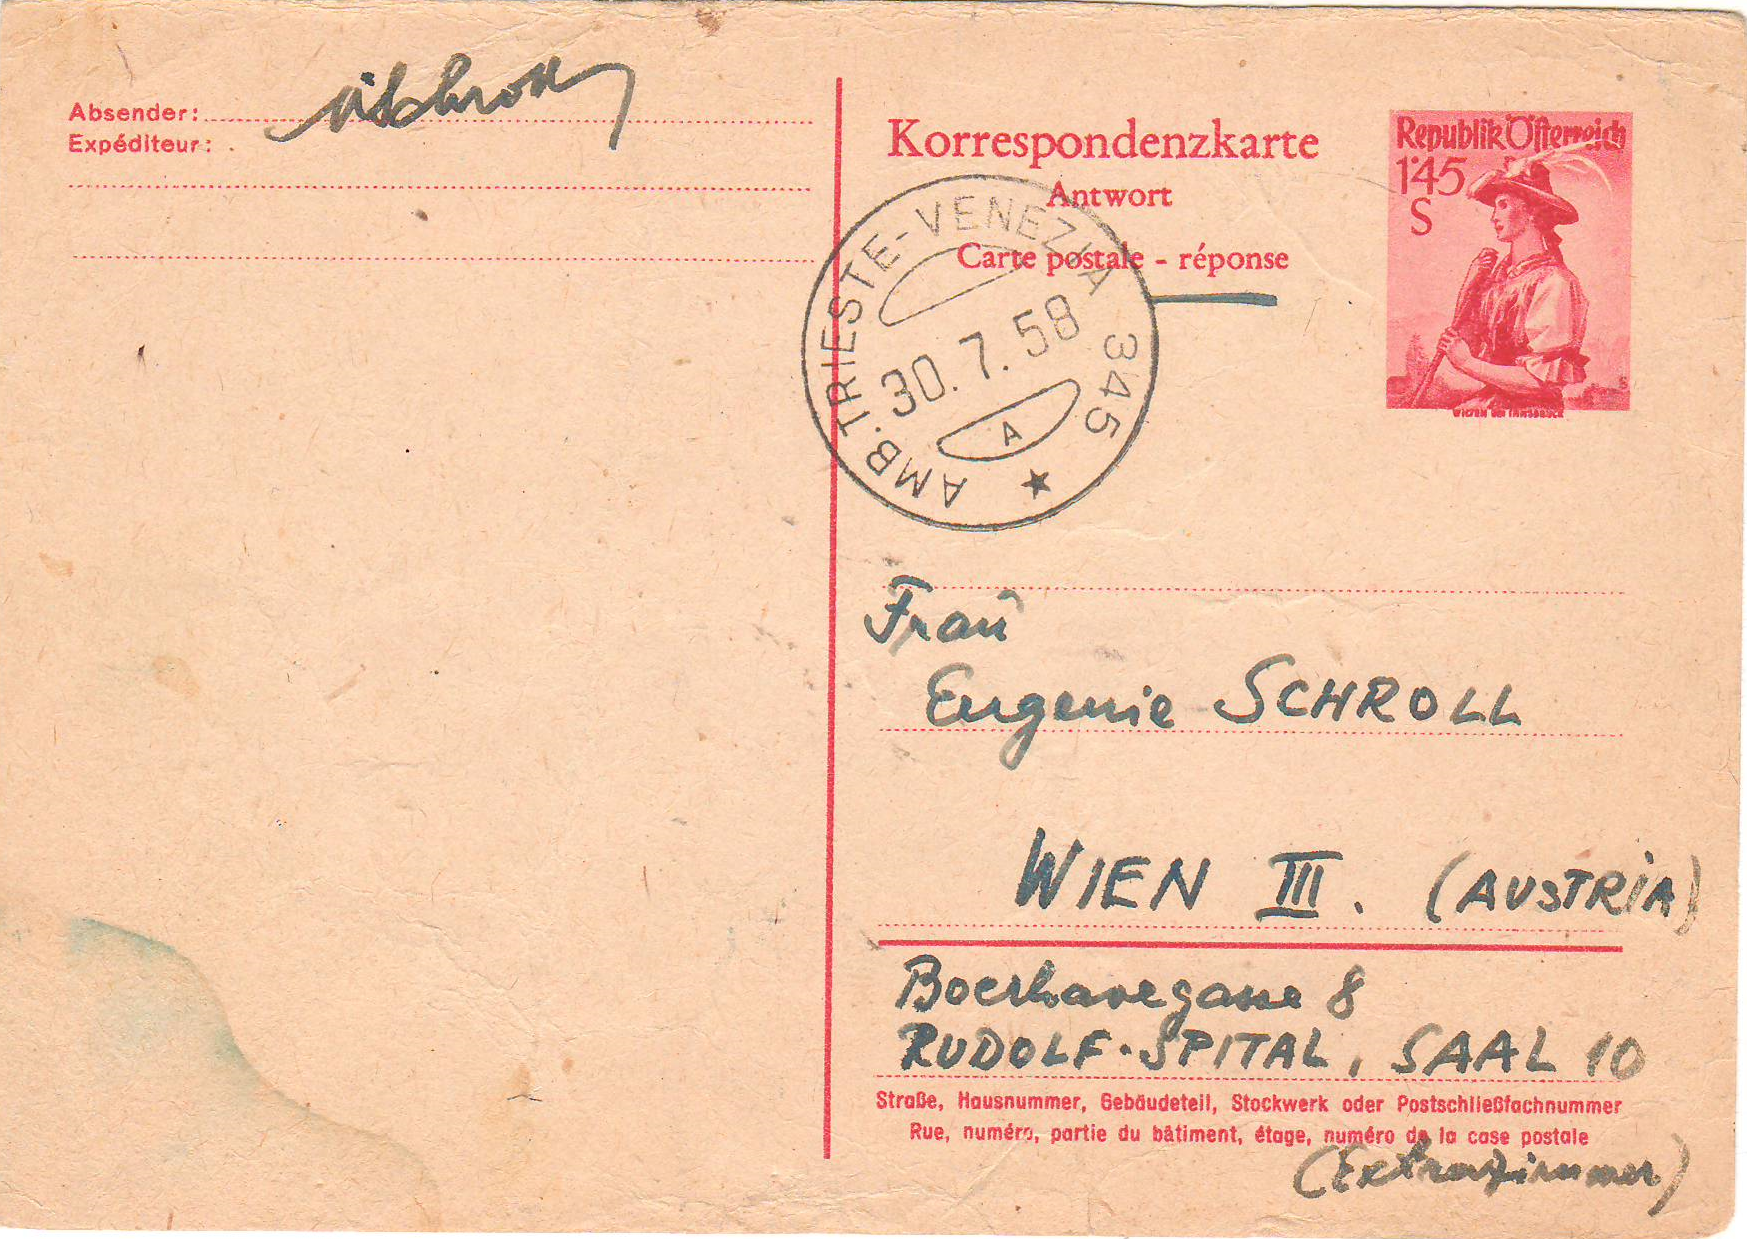 Absender:
Expéditeur:
Korrespondenzkarte
Antwort
Carte postale - réponse
Republik Österreich
1'45
S
WILTEN BEI INNSBRUCK
AMB. TRIESTE-VENEZIA 345
30.7.58
A
Frau
Eugenie SCHROLL
WIEN III. (AUSTRIA)
Boerhavegasse 8
RUDOLF-SPITAL, SAAL 10
Straße, Hausnummer, Gebäudeteil, Stockwerk oder Postschließfachnummer
Rue, numéro, partie du bâtiment, étage, numéro de la case postale
(Extrazimmer)